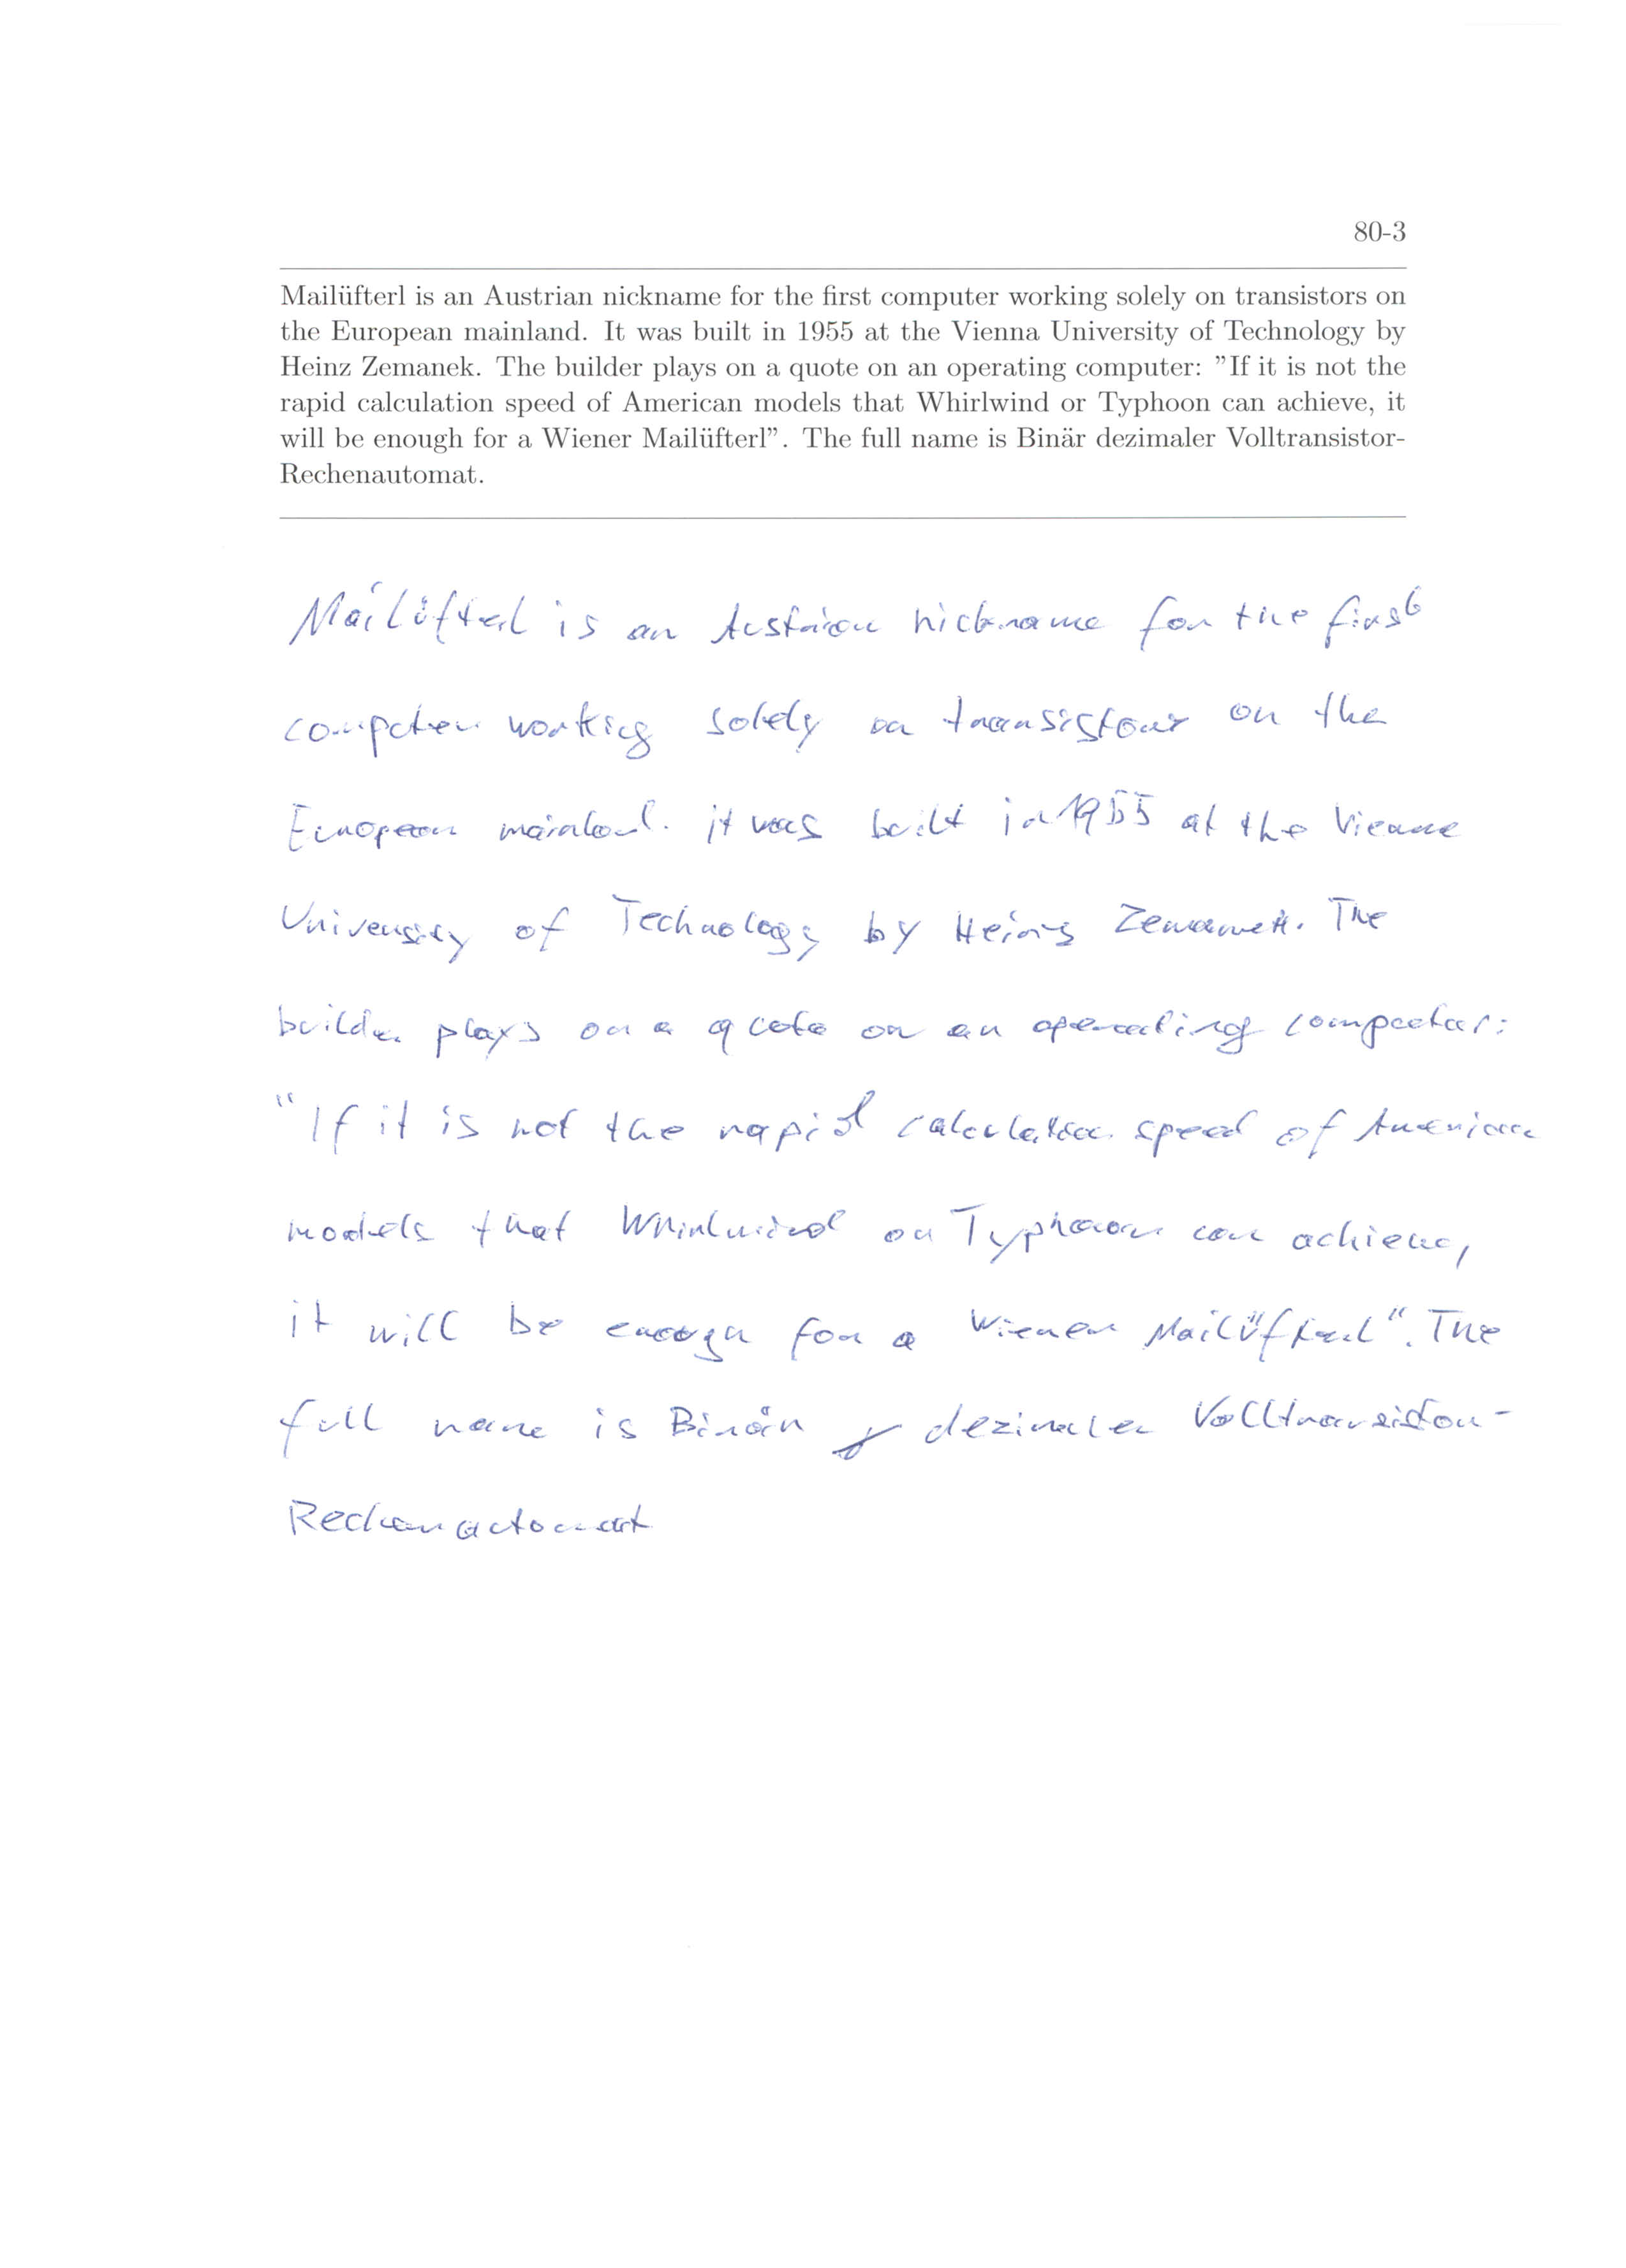 80-3
Mailüfterl is an Austrian nickname for the first computer working solely on transistors on
the European mainland. It was built in 1955 at the Vienna University of Technology by
Heinz Zemanek. The builder plays on a quote on an operating computer: ”If it is not the
rapid calculation speed of American models that Whirlwind or Typhoon can achieve, it
will be enough for a Wiener Mailüfterl”. The full name is Binär dezimaler Volltransistor-
Rechenautomat.
Mailüfterl is an Austrian nickname for the first
computer working solely on transistors on the
European mainland. it was built in 1955 at the Vienna
University of Technology by Heinz Zemanek. The
builder plays on a quote on an operating computer:
"If it is not the rapid calculation speed of American
models that Whirlwind or Typhoon can achieve,
it will be enough for a Wiener Mailüfterl". The
full name is Binär dezimaler Volltransistor-
Rechenautomat